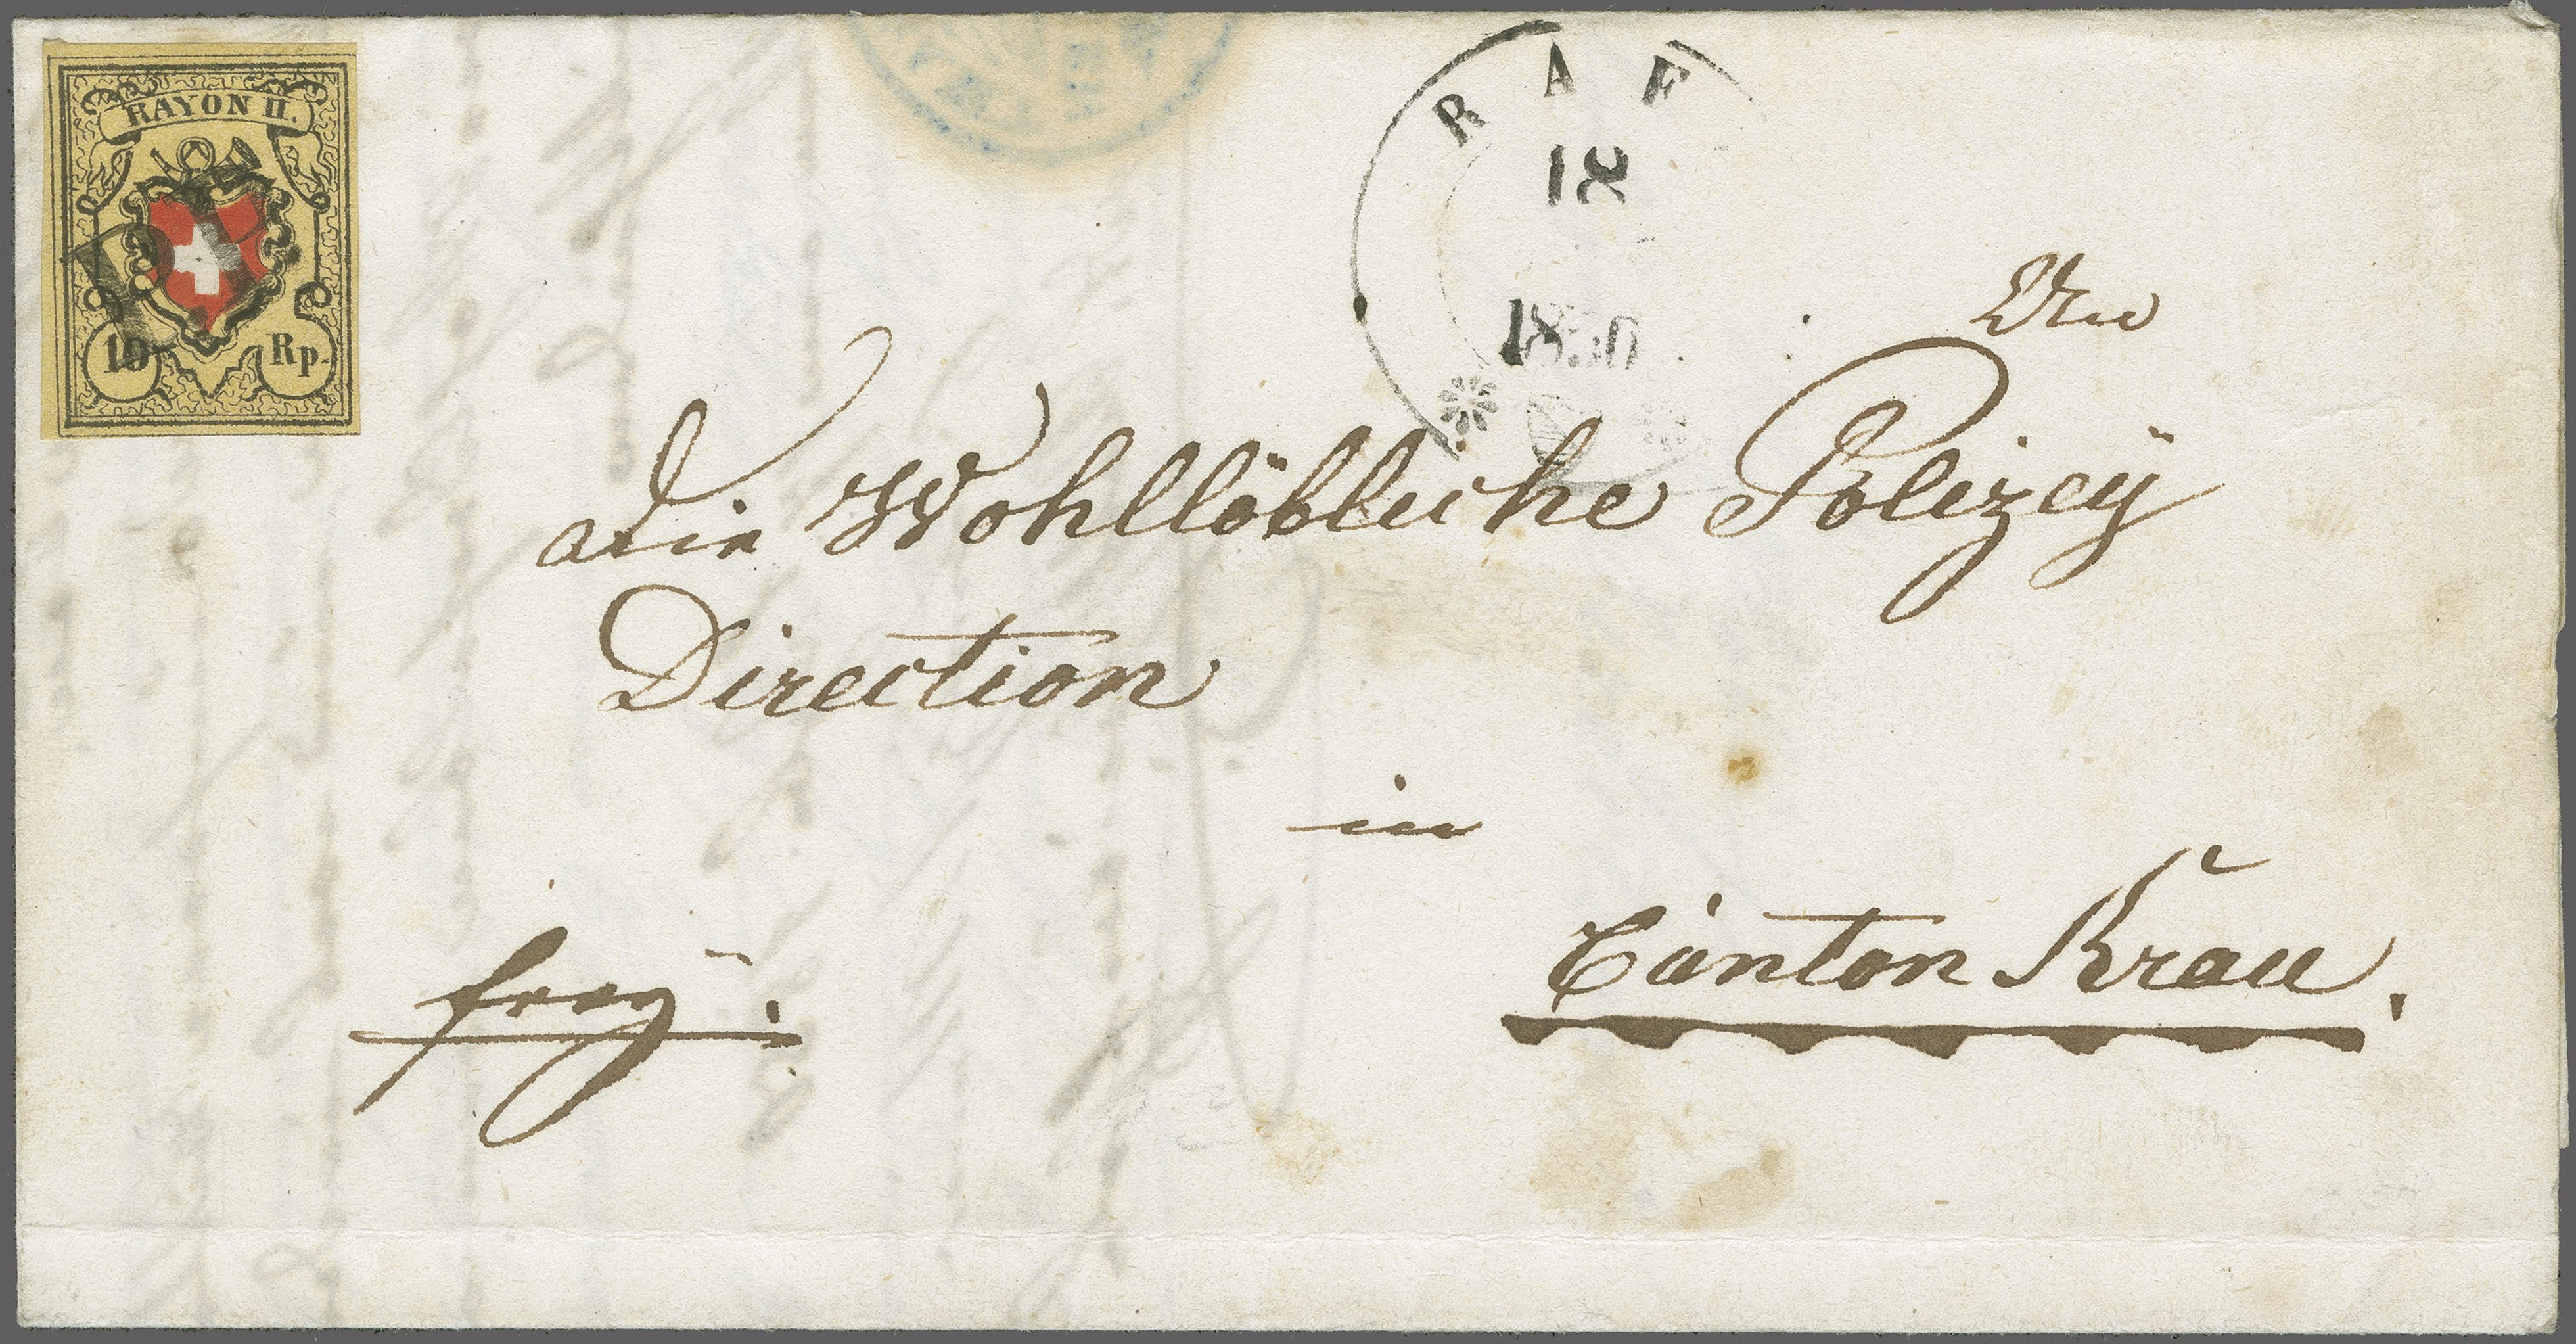 RAYON II.
10 Rp.
RAF
1850
An
die Wohllöbliche Polizeÿ
Direction
in
Canton Arau.
freÿ